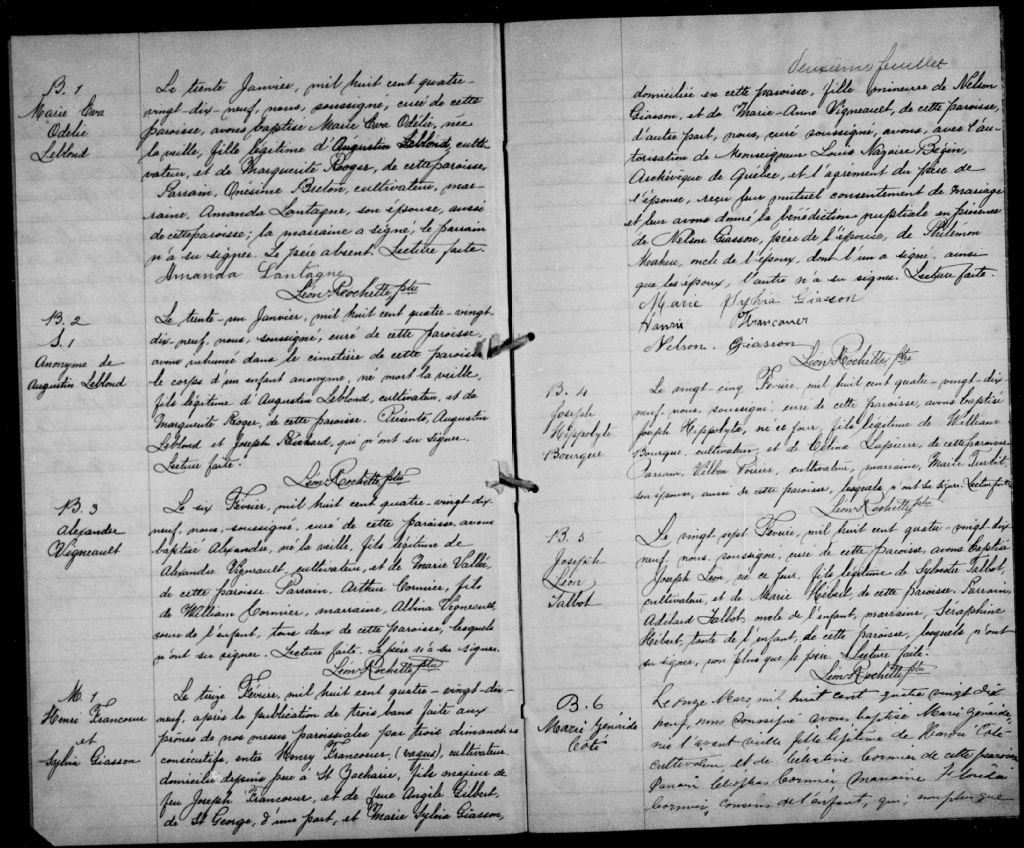 B. 1
Marie Eva
Odélie
Leblond
Le trente Janvier, mil huit cent quatre-
vingt-dix-neuf, nous, soussigné, curé de cette
paroisse, avons baptisé Marie Eva Odélie, née
la veille, fille légitime d'Augustin Leblond, culti-
vateur, et de Marguerite Roger, de cette paroisse.
Parrain, Onésime Breton, cultivateur, mar-
raine, Amanda Lantagne, son épouse, aussi
de cette paroisse; la marraine a signé; le parrain
n'a su signer. Le père absent. Lecture faite.
Amanda Lantagne
Léon Rochette ptre
B. 2
S. 1
Anonyme de
Augustin Leblond
Le trente-un Janvier, mil huit cent quatre-vingt-
dix-neuf, nous, soussigné, curé de cette paroisse,
avons inhumé dans le cimetière de cette paroisse
le corps d'un enfant anonyme, né mort la veille,
fils légitime d'Augustin Leblond, cultivateur, et de
Marguerite Roger, de cette paroisse. Présents, Augustin
Leblond et Joseph, qui n'ont su signer.
Lecture faite.
Léon Rochette ptre
B. 3
Alexandre
Vigneault
Le six Février, mil huit cent quatre-vingt-dix-
neuf, nous, soussigné, curé de cette paroisse, avons
baptisé Alexandre, né la veille, fils légitime de
Alexandre Vigneault, cultivateur, et de Marie Vallée,
de cette paroisse. Parrain, Arthur Cormier, fils
de William Cormier, marraine, Albina Vigneault,
soeur de l'enfant, tous deux de cette paroisse, lesquels
n'ont su signer. Lecture faite. Le père n'a su signer.
Léon Rochette ptre
M. 1
Henri Francoeur
et
Sylvia Giasson
Le treize Février, mil huit cent quatre-vingt-dix-
neuf, après la publication de trois bans faite aux
prônes de nos messes paroissiales par trois dimanches
consécutifs, entre Henry Francoeur, cultivateur,
domicilié depuis peu à St Zacharie, fils majeur de
feu Joseph Francoeur, et de feue Angèle Gilbert,
de St George, d'une part, et Marie Sylvia Giasson,
Deuxième feuillet
domiciliée en cette paroisse, fille mineure de Nelson
Giasson, et de Marie-Anne Vigneault, de cette paroisse,
d'autre part, nous, curé soussigné, avons, avec l'au-
torisation de Monseigneur Louis Nazaire Bégin,
Archévêque de Québec, et l'agrément du père de
l'épouse, reçu leur mutuel consentement de mariage
et leur avons donné la bénédiction nuptiale en présence
de Nelson Giasson, père de l'épouse, de Philémon
Maheu, oncle de l'époux, dont l'un a signé, ainsi
que les époux, l'autre n'a su signer. Lecture faite.
Marie Sylvia Giasson
Henrie Francoeur
Nelson. Giasson
Léon Rochette ptre
B. 4
Joseph
Hippolyte
Bourque
Le vingt-cinq Février, mil huit cent quatre-vingt-dix-
neuf, nous, soussigné, curé de cette paroisse, avons baptisé
Joseph Hippolyte, né ce jour, fils légitime de William
Bourque, cultivateur, et de Célina Lapierre, de cette paroisse.
Parrain, Poirier, cultivateur, marraine, Marie
son épouse, aussi de cette paroisse, lesquels n'ont su signer. Lecture faite.
Léon Rochette ptre
B. 5
Joseph
Léon
Talbot
Le vingt-sept Février, mil huit cent quatre-vingt-dix-
neuf, nous, soussigné, curé de cette paroisse, avons baptisé
Joseph Léon, né ce jour, fils légitime de Sylvestre Talbot,
cultivateur, et de Marie Hébert, de cette paroisse. Parrain,
Adélard Talbot, oncle de l'enfant, marraine, Séraphine
Hébert, tante de l'enfant, de cette paroisse, lesquels n'ont
su signer, non plus que le père. Lecture faite.
Léon Rochette ptre
B. 6
Marie Zénaïde
Côté
Le onze Mars, mil huit cent quatre vingt dix
neuf, nous soussigné avons baptisé Marie Zénaïde,
née l'avant veille fille légitime de Côté
cultivateur, et de Célestine Cormier de cette paroisse
Parrain Cléophas Cormier, marraine
Cormier, cousins de l'enfant, qui, non plus que